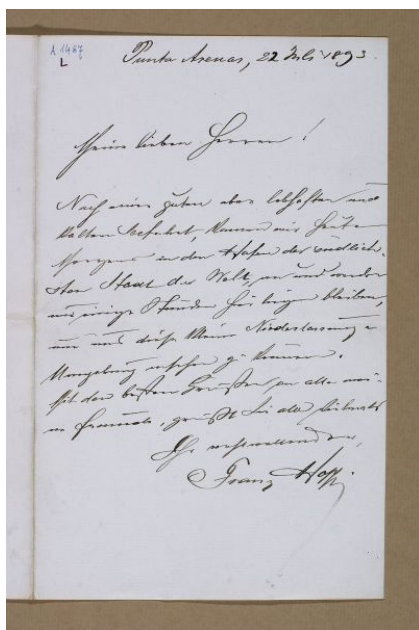 A 1487
L
Punta Arenas, 22 Juli 1893.
Meine lieben Herren!
Nach einer guten aber lebhaften und
kalten Seefahrt, kamen wir heute
Morgens in den Hafen der südlich-
sten Stadt der Welt, an und werden
nur einige Stunden hier liegen bleiben,
um uns diese kleine Niederlassung u
Umgebung ansehen zu können.
Mit den besten Grüßen an alle
Freunde, grüßt Sie alle
Ihr
Franz